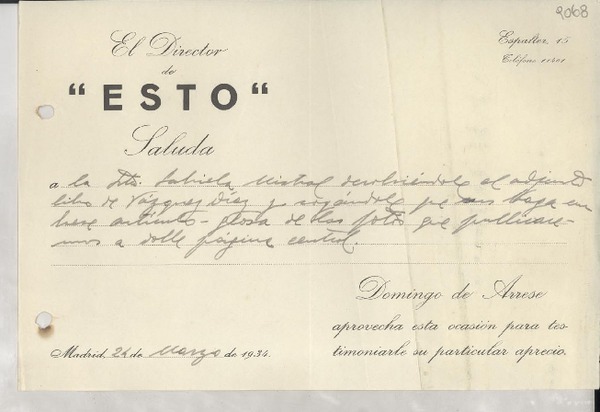 2068
El Director
de
"ESTO"
Saluda
Espalter, 15
Teléfono 11401
a la Srta. Gabriela Mistral devolviéndole el adjunto
libro de Vázquez Díaz y rogándole que nos haga un
breve artículo-glosa de las fotos que publicare-
mos a doble página central.
Domingo de Arrese
aprovecha esta ocasión para tes-
timoniarle su particular aprecio.
Madrid, 24 de Marzo de 1934.